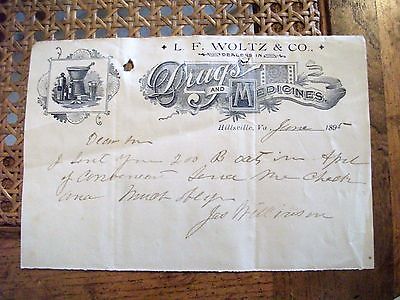 L. F. WOLTZ & CO.,
DEALERS IN
Drugs
AND
MEDICINES.
Hillsville, Va., June 1895
Dear Sir
I sent you 200 B oats in Apl
if Convenient Send me Check
and Much oblige
Jas Wilkinson